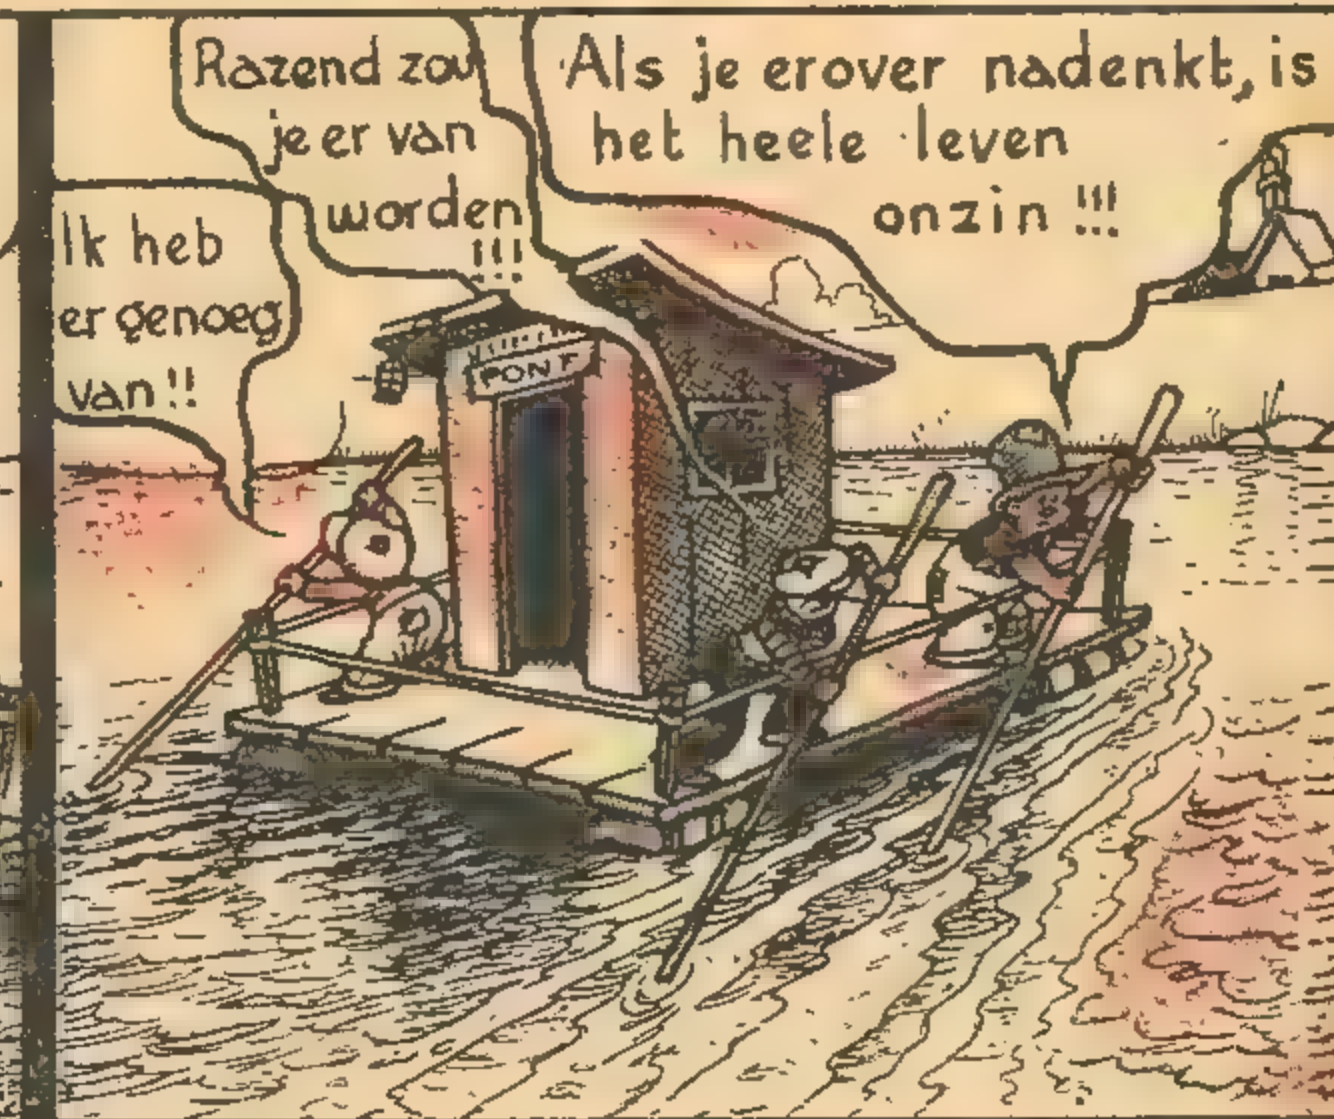 Ik heb
er genoeg
van!!
Razend zou
je er van
worden
!!!
Als je erover nadenkt, is
het heele leven
onzin !!!
PONT